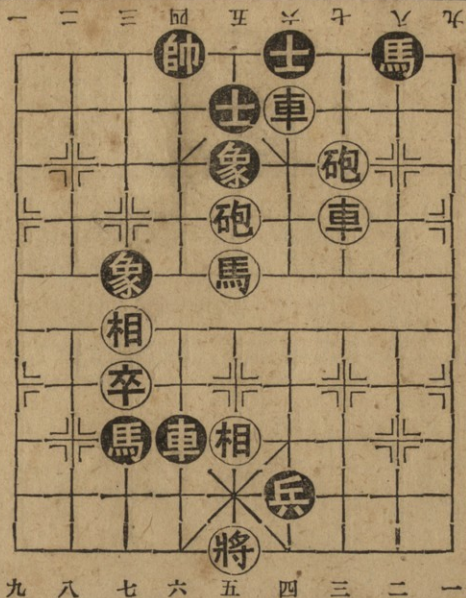 一 二 三 四 五 六 七 八 九
帥 士 馬
士 車
象 砲
砲 車
象 馬
相
卒
馬 車 相
兵
將
九 八 七 六 五 四 三 二 一